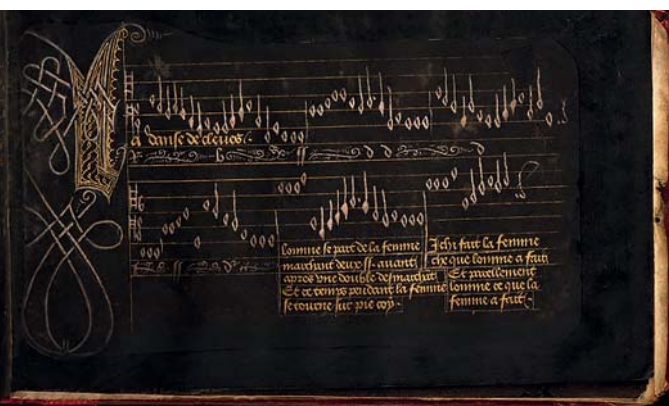 La danse de cleves
R b ss d d R d
lomme se part de la femme
marchant deux ss auant
apres vne double desmarchat
Et ce temps pendant la femme
se tourne sur pie coy
Ichi fait la femme
che que lomme a fait
Et pareillement
lomme ce que la
femme a fait